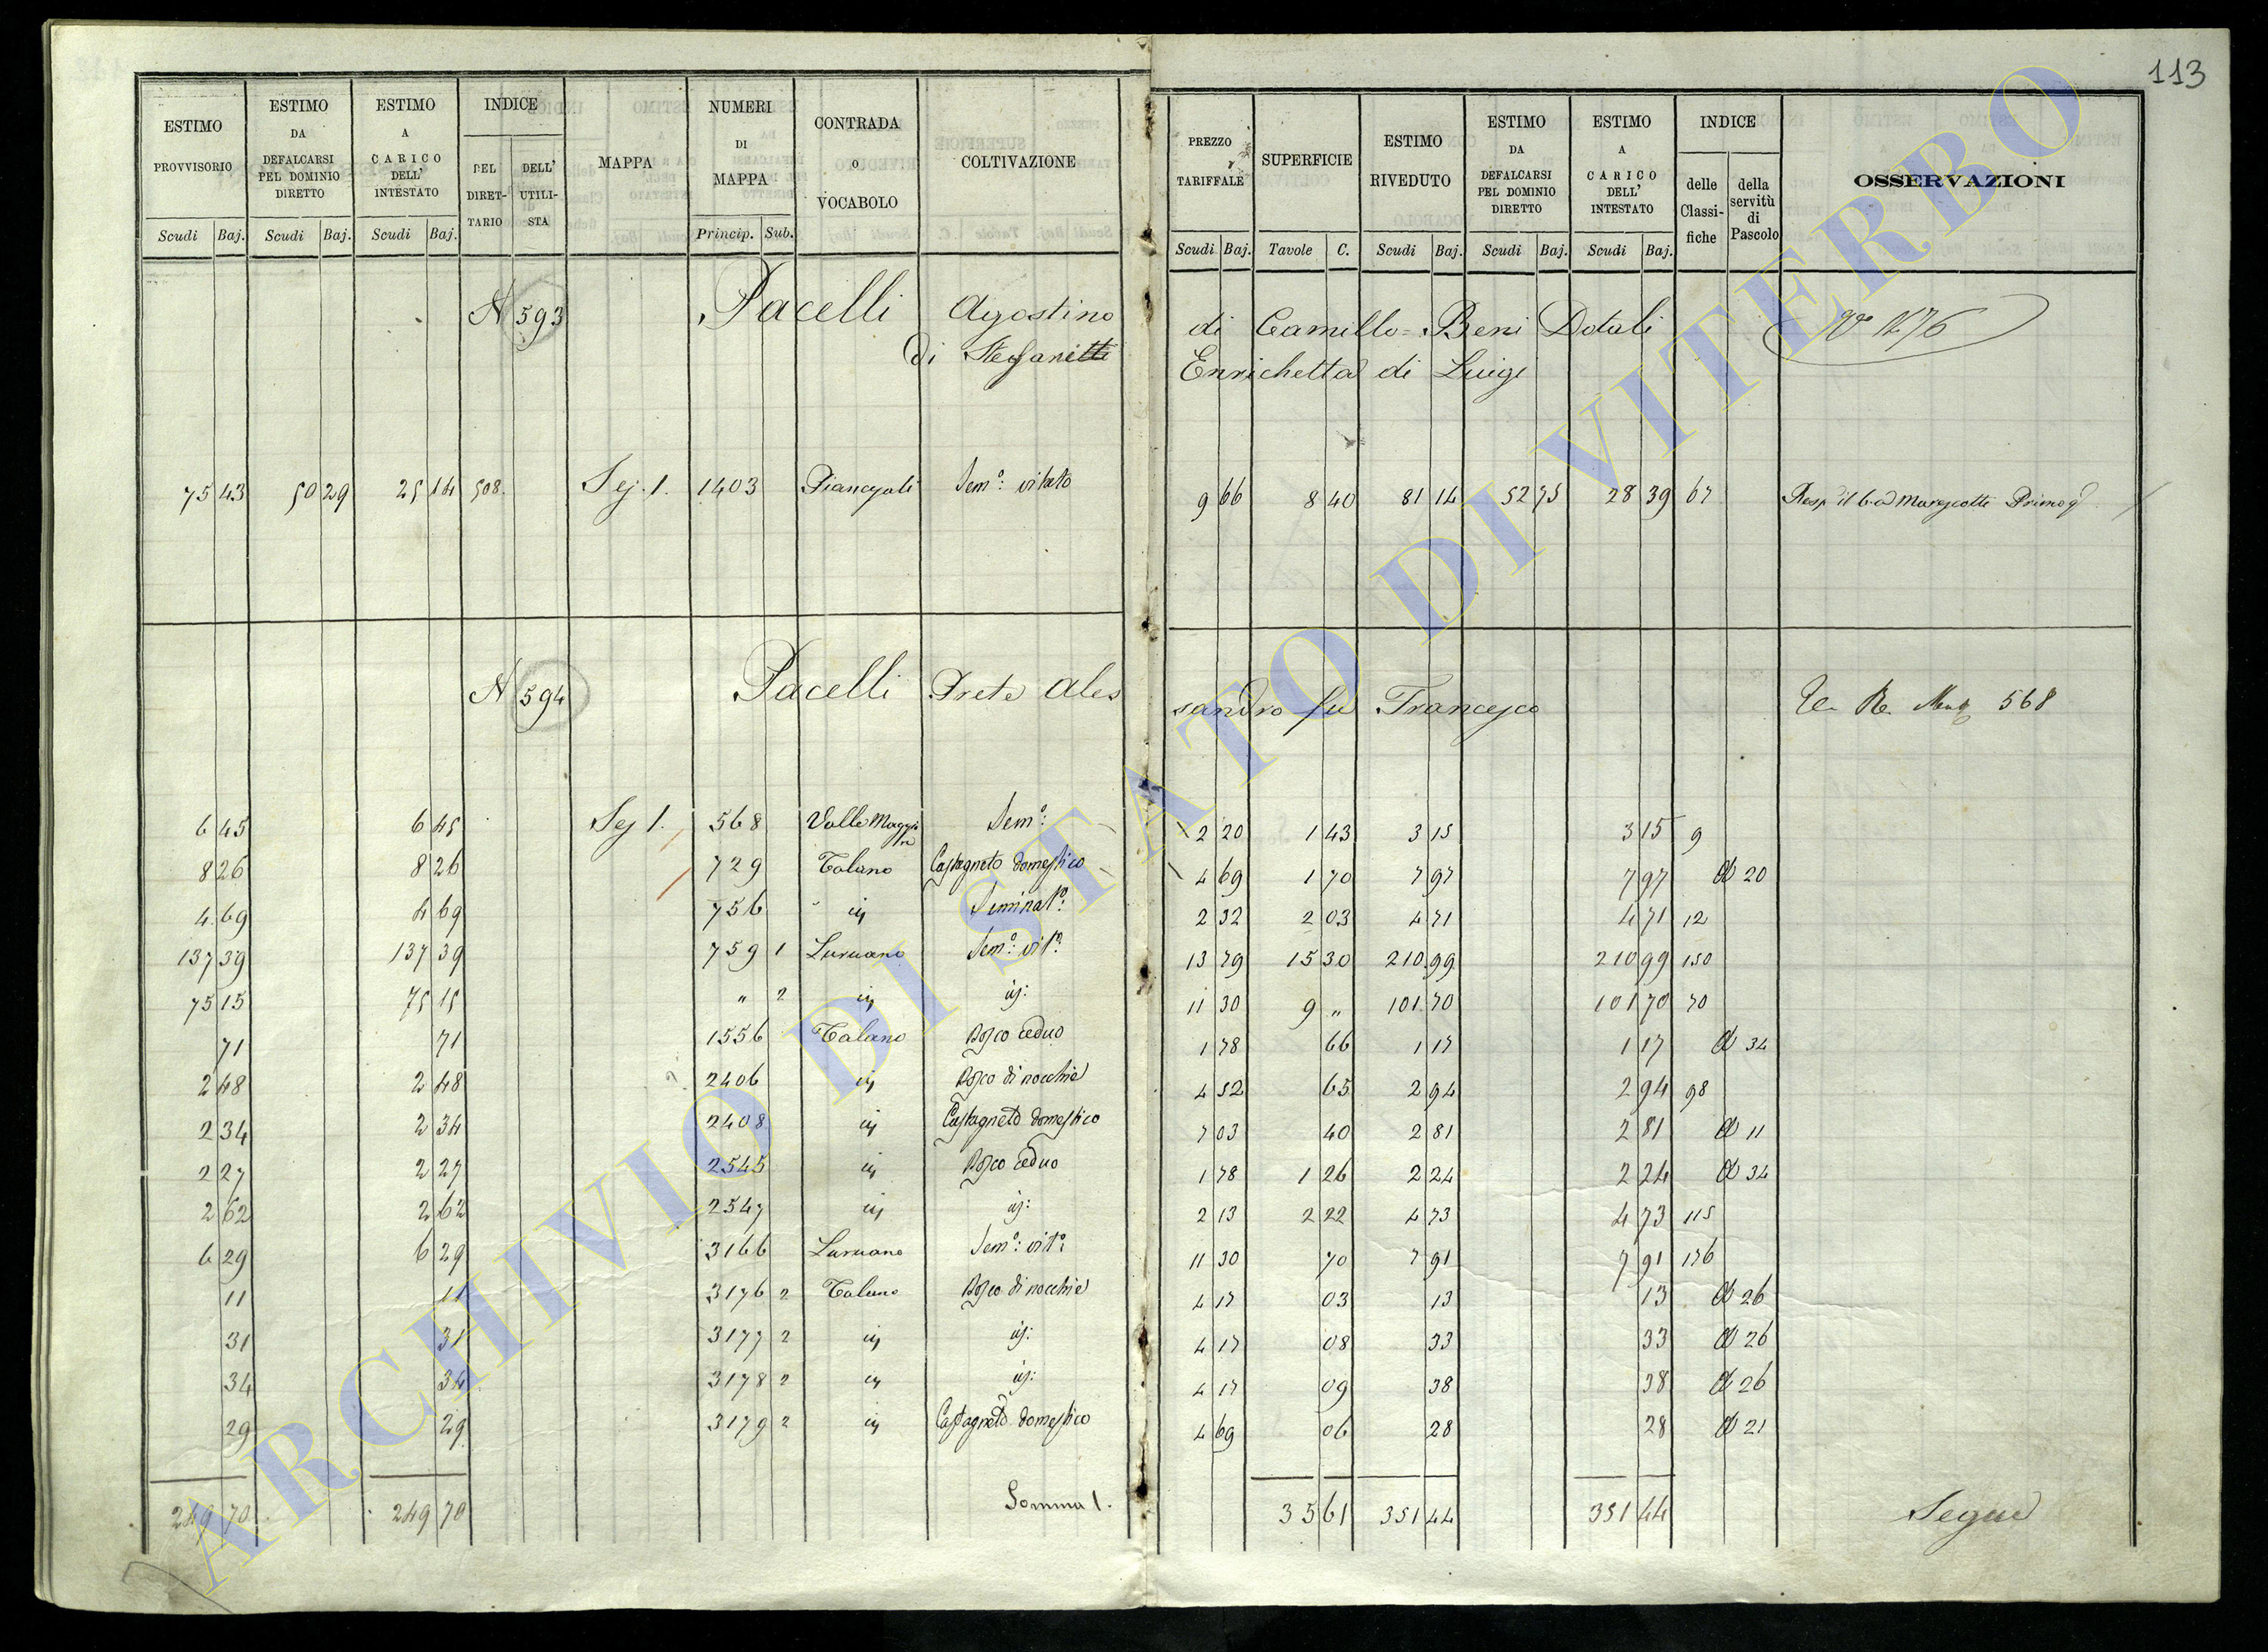 113
ESTIMO PROVVISORIO | ESTIMO DA DEFALCARSI PEL DOMINIO DIRETTO | ESTIMO A CARICO DELL' INTESTATO | INDICE | MAPPA | NUMERI DI MAPPA | CONTRADA o VOCABOLO | COLTIVAZIONE | PREZZO TARIFFALE | SUPERFICIE | ESTIMO RIVEDUTO | ESTIMO DA DEFALCARSI PEL DOMINIO DIRETTO | ESTIMO A CARICO DELL' INTESTATO | INDICE | OSSERVAZIONI
DEL DIRETTARIO | DELL' UTILISTA | delle Classifiche | della servitù di Pascolo
Scudi Baj. | Scudi Baj. | Scudi Baj. | Princip. Sub. | Scudi Baj. | Tavole C. | Scudi Baj. | Scudi Baj. | Scudi Baj.
N 593 Pacelli Agostino di Camillo = Beni Dotali
di Stefanetti Enrichetta di Luigi
75 43 | 50 29 | 25 14 | 508. | Sez. 1. | 1403 | Sem.º vitato | 9 66 | 8 40 | 81 14 | 52 75 | 28 39 | 67
N 594 Pacelli Prete Alessandro fu Francesco 568
6 45 | 6 45 | Sez 1. | 568 | Valle Maggiore | Sem.º: | 2 20 | 1 43 | 3 15 | 3 15 | 9
8 26 | 8 26 | 729 | Talano | Castagneto domestico | 4 69 | 1 70 | 7 97 | 7 97 | 20
4 69 | 4 69 | 756 | " ig | Seminatº: | 2 32 | 2 03 | 4 71 | 4 71 | 12
137 39 | 137 39 | 759 1 | Luruano | Semº: vitº: | 13 79 | 15 30 | 210 99 | 210 99 | 150
75 15 | 75 15 | " 2 | ig | ig: | 11 30 | 9 " | 101 70 | 101 70 | 70
71 | 71 | 1556 | Talano | Bosco ceduo | 1 78 | 66 | 1 17 | 1 17 | 34
2 48 | 2 48 | 2406 | ig | Bosco di nocchie | 4 52 | 65 | 2 94 | 2 94 | 98
2 34 | 2 34 | 2408 | ig | Castagneto domestico | 7 03 | 40 | 2 81 | 2 81 | 11
2 27 | 2 27 | 2545 | ig | Bosco ceduo | 1 78 | 1 26 | 2 24 | 2 24 | 34
2 62 | 2 62 | 2547 | ig | ig: | 2 13 | 2 22 | 4 73 | 4 73 | 115
6 29 | 6 29 | 3166 | Luruano | Semº: vitº: | 11 30 | 70 | 7 91 | 7 91 | 176
11 | 11 | 3176 2 | Talano | Bosco di nocchie | 4 17 | 03 | 13 | 13 | 26
31 | 31 | 3177 2 | ig | ig: | 4 17 | 08 | 33 | 33 | 26
34 | 34 | 3178 2 | ig | ig: | 4 17 | 09 | 38 | 38 | 26
29 | 29 | 3179 2 | ig | Castagneto domestico | 4 69 | 06 | 28 | 28 | 21
249 70 | 249 70 | Somma 1. | 35 61 | 351 44 | 351 44 | Segue
ARCHIVIO DI STATO DI VITERBO